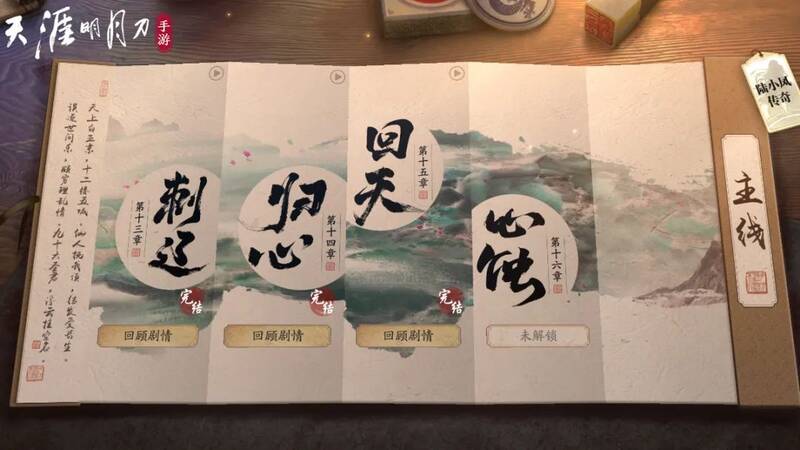 天涯明月刀
手游
陆小凤
传奇
主线
刺辽
第十三章
完结
回顾剧情
归心
第十四章
完结
回顾剧情
回天
第十五章
完结
回顾剧情
心蚀
第十六章
未解锁
天上白玉京,十二楼五城。仙人抚我顶,结发受长生。
误逐世间乐,颇穷理乱情。九十六圣君,浮云挂空名。